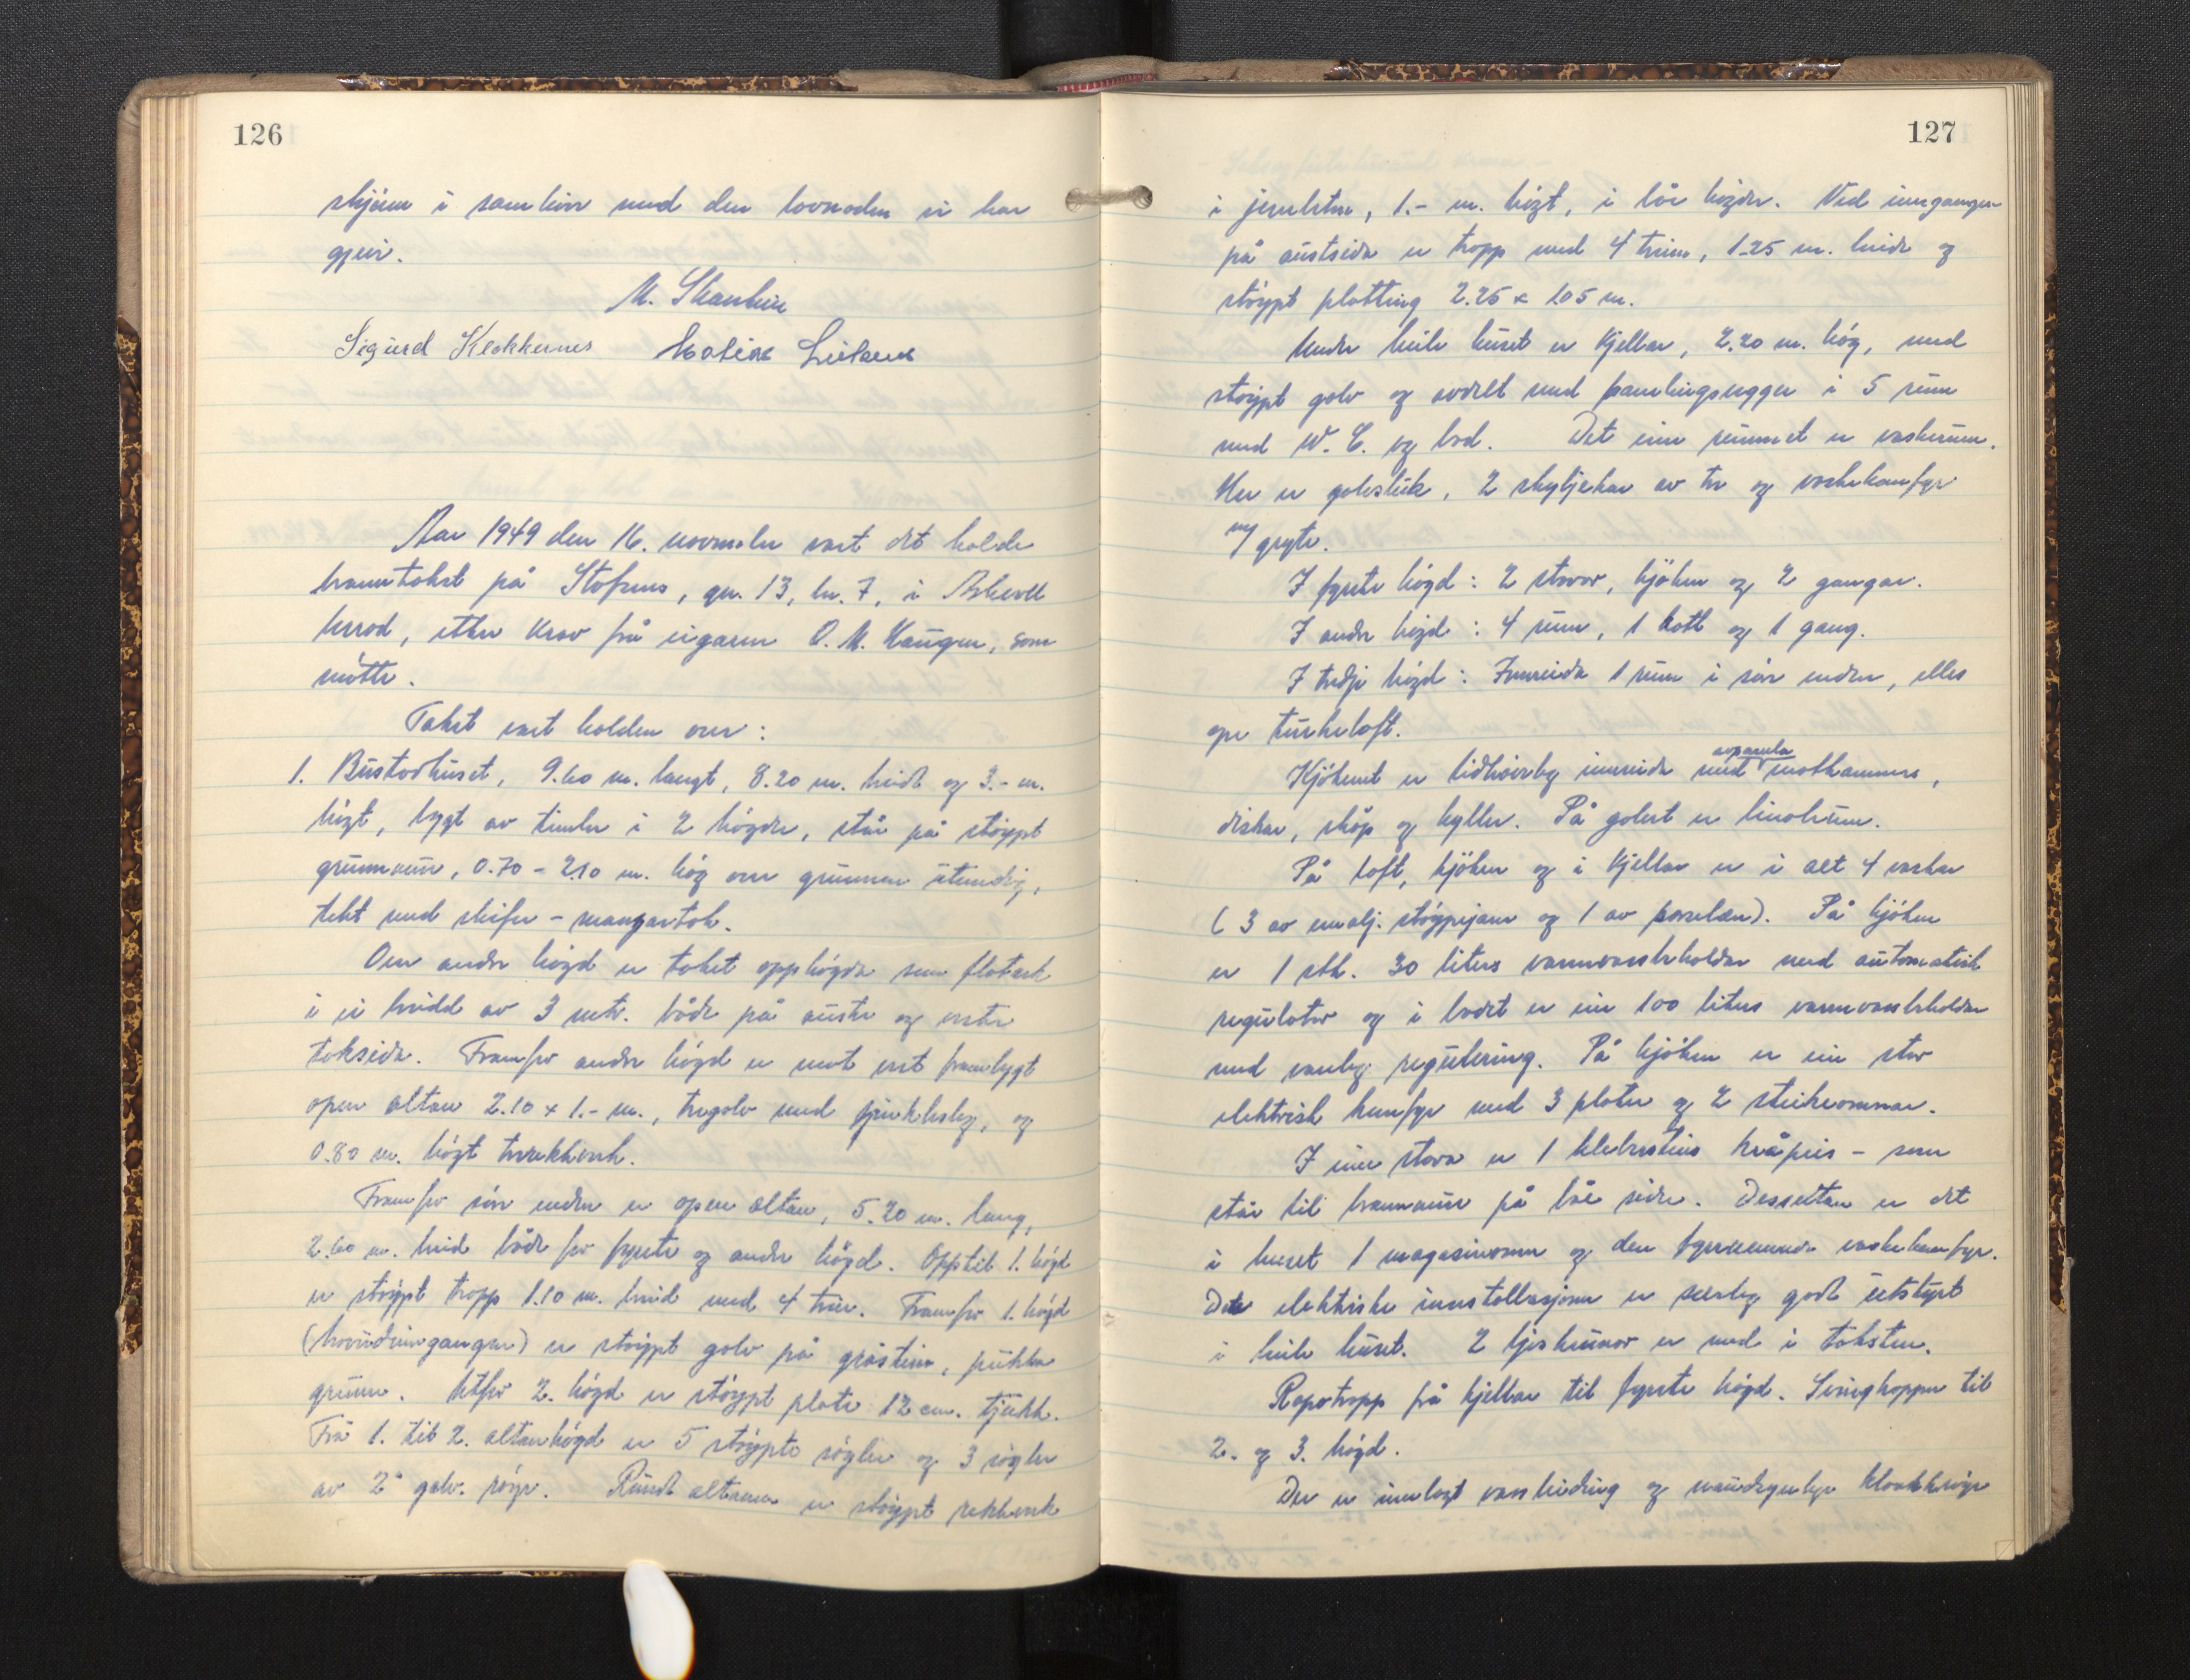 126
skjøn i samhøve med den lovnaden vi har
gjeve.
Sigurd Klokkernes Matias
Aar 1949 den 16. november vart det halde
branntakst på Stofsnes, gn. 13, bn. 7, i Askvoll
herad, etter krav frå eigaren O. M. Haugen, som
møtte.
Takst vart halden over:
1. Bustadhuset, 9.60 m. langt, 8.20 m. breidt og 3.- m.
høgt, bygt av timber i 2 høgder, står på støypt
grunnmur, 0.70 - 2.10 m. høg over grunnen utvendig,
tekt med skifer - mansartak.
Over andre høgd er taket opphøgda som flatark
i ei breidd av 3 mtr. både på austre og vestre
takside. Framfor andre høgd er mot vest frambygt
open altan 2.10 x 1.- m., tregolv med sinkbeslag, og
0.80 m. høgt trerekkverk.
Framfor søre enden er open altan, 5.20 m. lang,
2.60 m. breid både for fyrste og andre høgd. Opptil 1. høgd
er støypt tropp 1.10 m. breid med 4 trin. Framfor 1. høgd
(hovudinngangen) er støypt golv på gråstein, pukka
grunn. Utfor 2. høgd er støypt plate 12 cm. tjukk.
Frå 1. til 2. altanhøgd er 5 støypte søyler og 3 søyler
av 2" galv. røyr. Rundt altanene er støypt rekkverk
127
i jernbetong, 1.- m. høgt, i båe høgder. Ved inngangen
på austsida er tropp med 4 trinn, 1.25 m. breide og
støypt platting 2.25 x 1.05 m.
Under heile huset er kjellar, 2.20 m. høg, med
støypt golv og avdelt med panelingsveggar i 5 rum
med W. C. og bad. Det eine rummet er vaskerum.
Her er golvsluk, 2 skyljekar av tre og vaskekomfyr
m/ gryte.
I fyrste høgd: 2 stover, kjøken og 2 gangar.
I andre høgd: 4 rum, 1 kott og 1 gang.
I tredje høgd: Innreida 1 rum i søre enden, elles
ope turkeloft.
Kjøkenet er tidhøveleg innreida med avpanela matkammers,
diskar, skåp og hyller. På golvet er linoleum.
På loft, kjøken og i kjellar er i alt 4 vaskar
(3 av emalj. støypejarn og 1 av porselen). På kjøken
er 1 stk. 30 liters varmvassbehaldar med automatisk
regulator og i badet er ein 100 liters varmvassbehaldar
med vanleg regulering. På kjøken er ein stor
elektrisk komfyr med 3 plater og 2 steikeomnar.
I eine stova er 1 klebersteins kråpeis - som
står til brannmur på båe sider. Dessutan er det
i huset 1 magasinomn og den fyrrnemnde vaskekomfyr.
Den elektriske innstallasjonen er særleg godt utstyrt
i heile huset. 2 ljoskruner er med i taksten.
Rapetropp frå kjellar til fyrste høgd. Svingtroppar til
2. og 3. høgd.
Der er innlagt vassleidning og naudsynlege kloakkrøyr